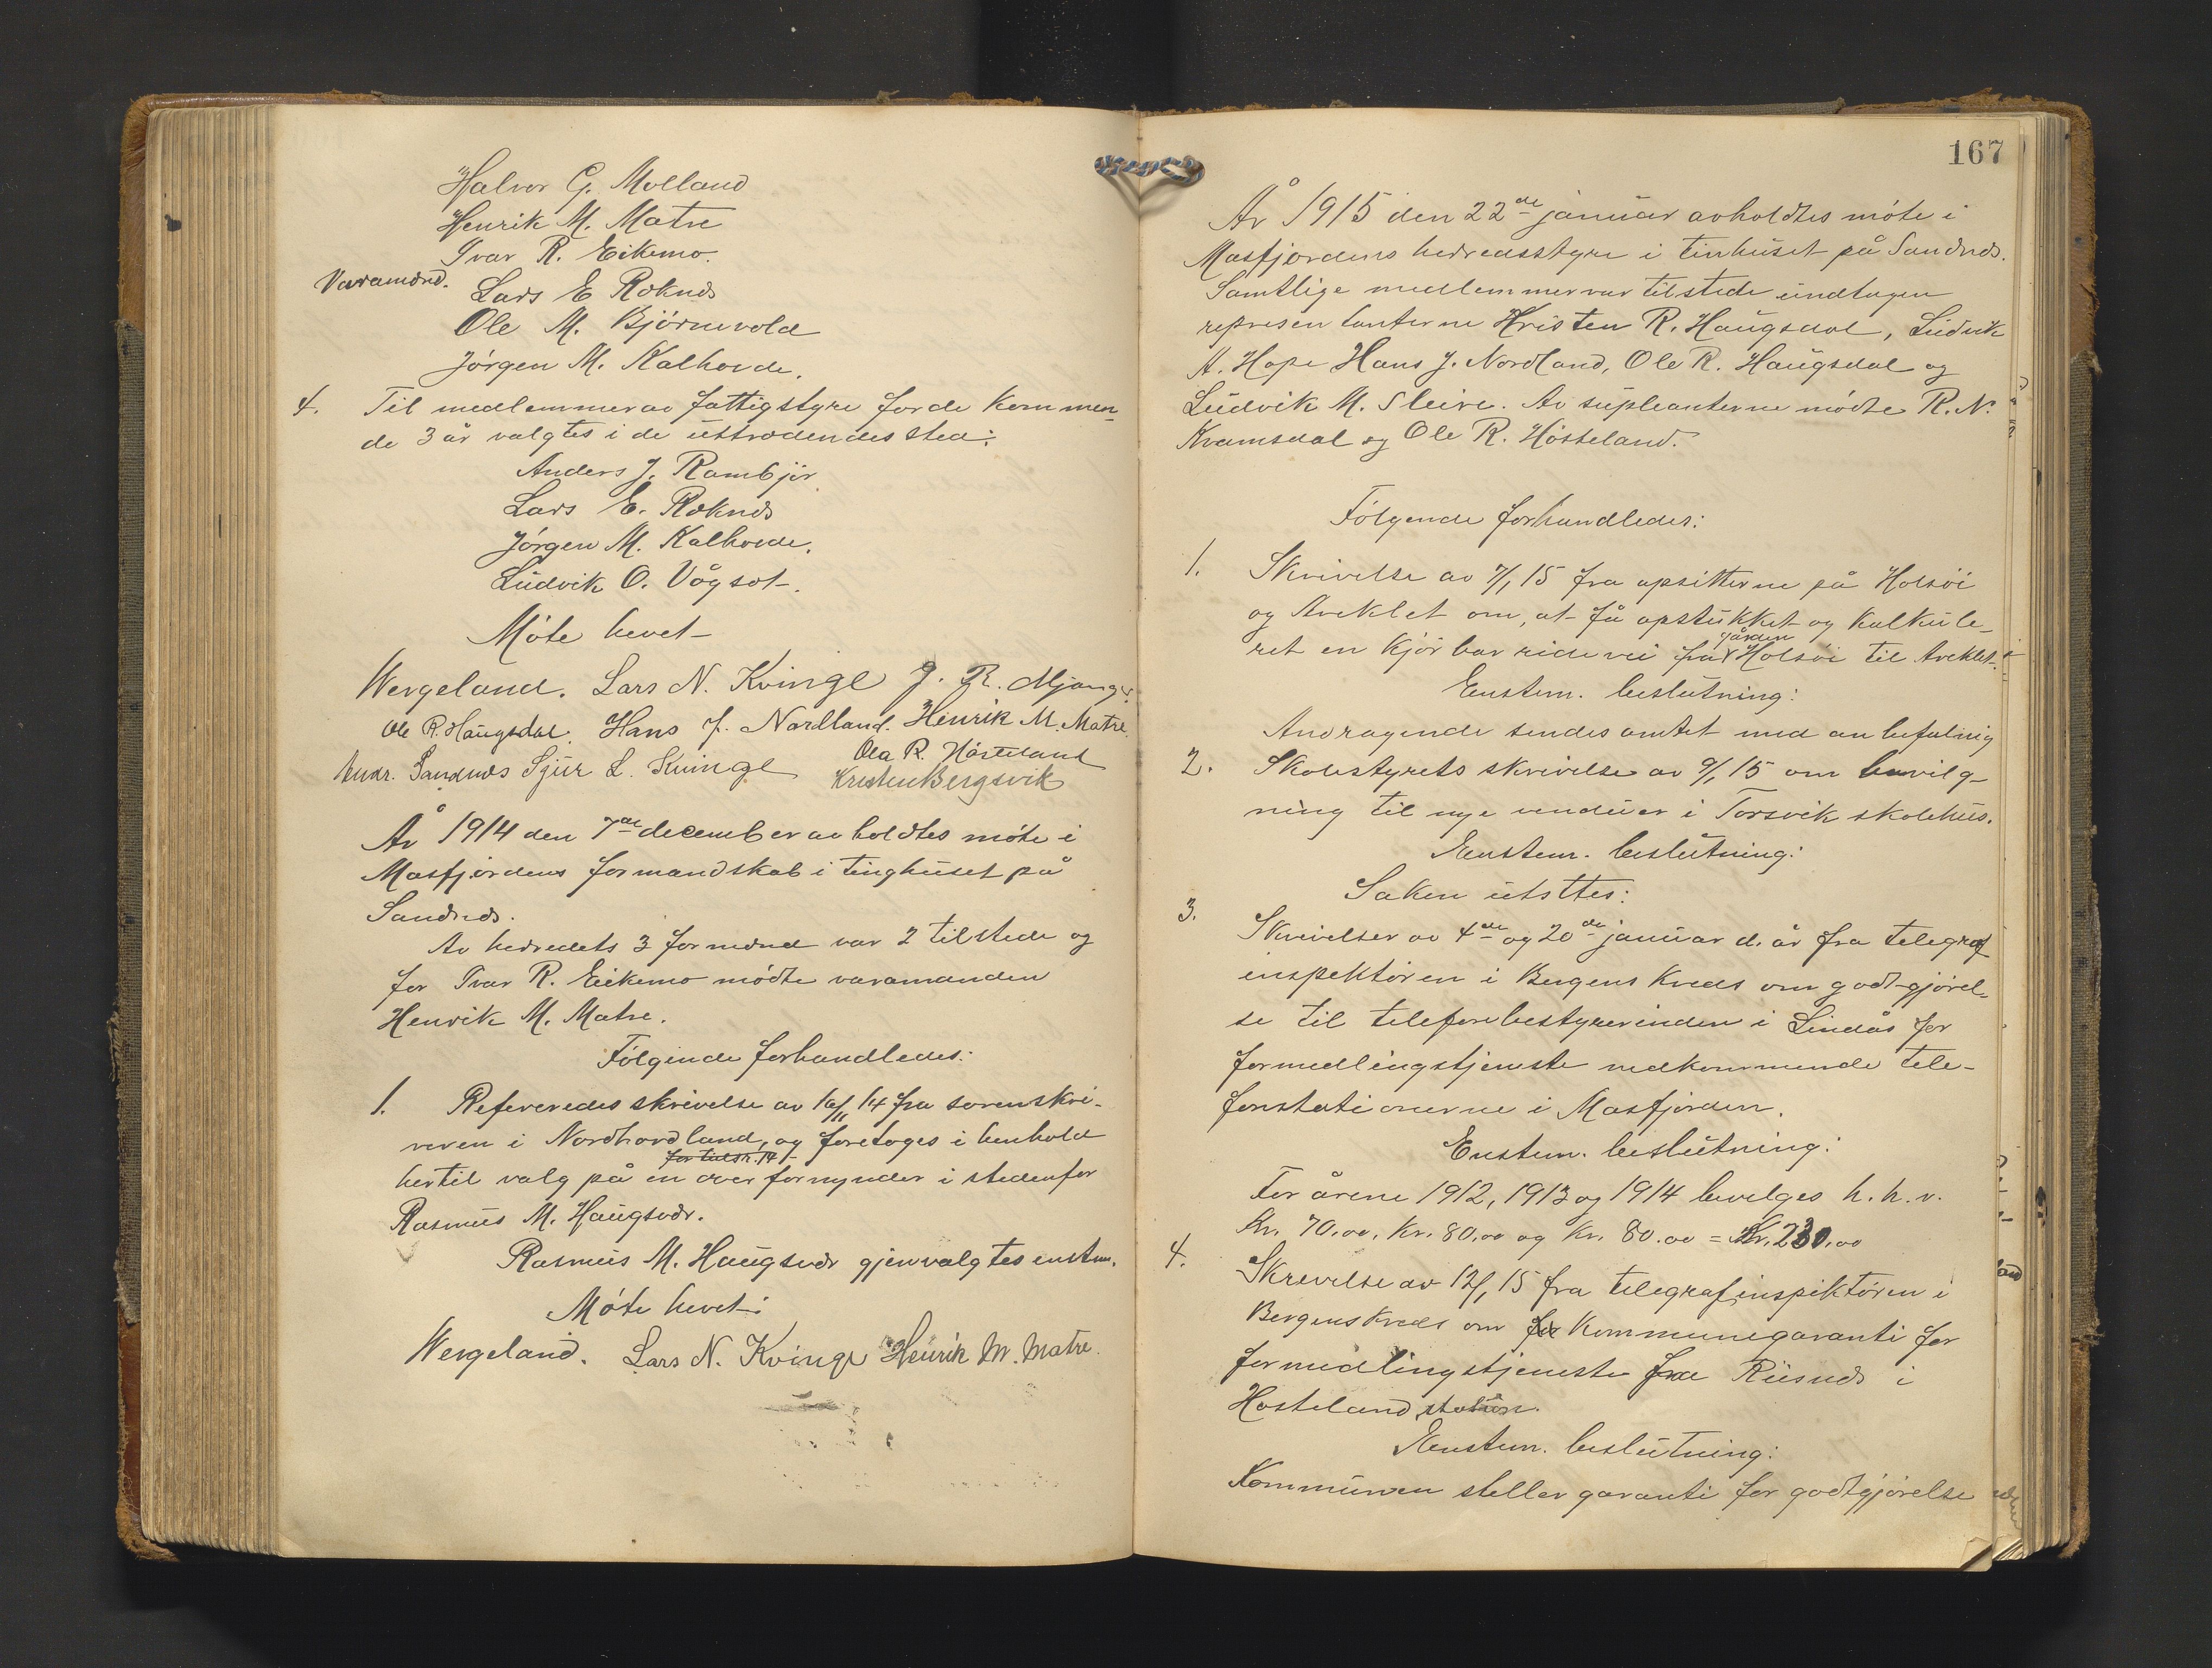 Halvor G. Molland
Henrik M. Matre
Ivar R. Eikemo.
Varamænd. Lars E Roknes
Ole M. Bjørnevold
Jørgen M. Kalhovde.
4. Til medlemmer av fattigstyre for de kommen-
de 3 år valgtes i de uttrædendes sted:
Anders J. Rambjør
Lars E. Roknes
Jørgen M. Kalhovde.
Ludvik O. Vågset.
Møte hevet
Wergeland. Lars N. Kvinge J. R. Mjanger
Ole R. Haugsdal. Hans J. Nordland. Henrik M. Matre.
Ola R. Høsteland
Andr. Sandnes Sjur L. Kvinge Kristen Bergsvik
År 1914 den 7de december avholdtes møte i
Masfjordens formandskab i tinghuset på
Sandnes.
Av herredets 3 formænd var 2 tilstede og
for Ivar R. Eikemo mødte varamanden
Henrik M. Matre.
Følgende forhandledes:
1. Refereredes skrivelse av 16/11 14 fra sorenskri-
veren i Nordhordland, og foretoges i henhold
hertil valg på en overformynder i stedenfor
Rasmus M. Haugsvær.
Rasmus M. Haugsvær gjenvalgtes enstem.
Møte hevet:
Wergeland. Lars N. Kvinge Henrik M. Matre.
167
År 1915 den 22de januar avholdtes møte i
Masfjordens herredsstyre i tinhuset på Sandnes.
Samtlige medlemmer var tilstede undtagen
representanterne Kristen R. Haugsdal, Ludvik
A. Hope Hans J. Nordland, Ole R. Haugsdal og
Ludvik M. Sleire. Av supleanterne mødte R. N.
Kvamsdal og Ole R. Høsteland.
Følgende forhandledes:
1. Skrivelse av 7/1 15 fra opsitterne på Holsøi
og Areklet om, at få opstukket og kalkule-
gården
ret en kjørbar ridevei fra Holsøi til Areklet.
Enstem. beslutning:
Andragende sendes amtet med anbefaling
2. Skolestyrets skrivelse av 9/1 15 om bevilg-
ning til nye vinduer i Torsvik skolehus.
Enstem. beslutning:
Saken utsttes:
3. Skrivelser av 4de og 20de januar d. år fra telegraf
inspektøren i Bergens kreds om godtgjørel-
se til telefonbestyrerinden i Lindås for
formedlingstjeneste vedkommende tele-
fonstationerne i Masfjorden.
Enstem. beslutning:
For årene 1912, 1913 og 1914 bevilges h. h. v.
Kr. 70.00, Kr. 80.00 og Kr. 80.00 = Kr. 230.00
4. Skrivelse av 12/1 15 fra telegrafinspektøren i
Bergens kreds om kommunegaranti for
formedlingstjeneste fra Risnes i
Hosteland station.
Enstem. beslutning:
Kommunen steller garanti for godtgjørelse